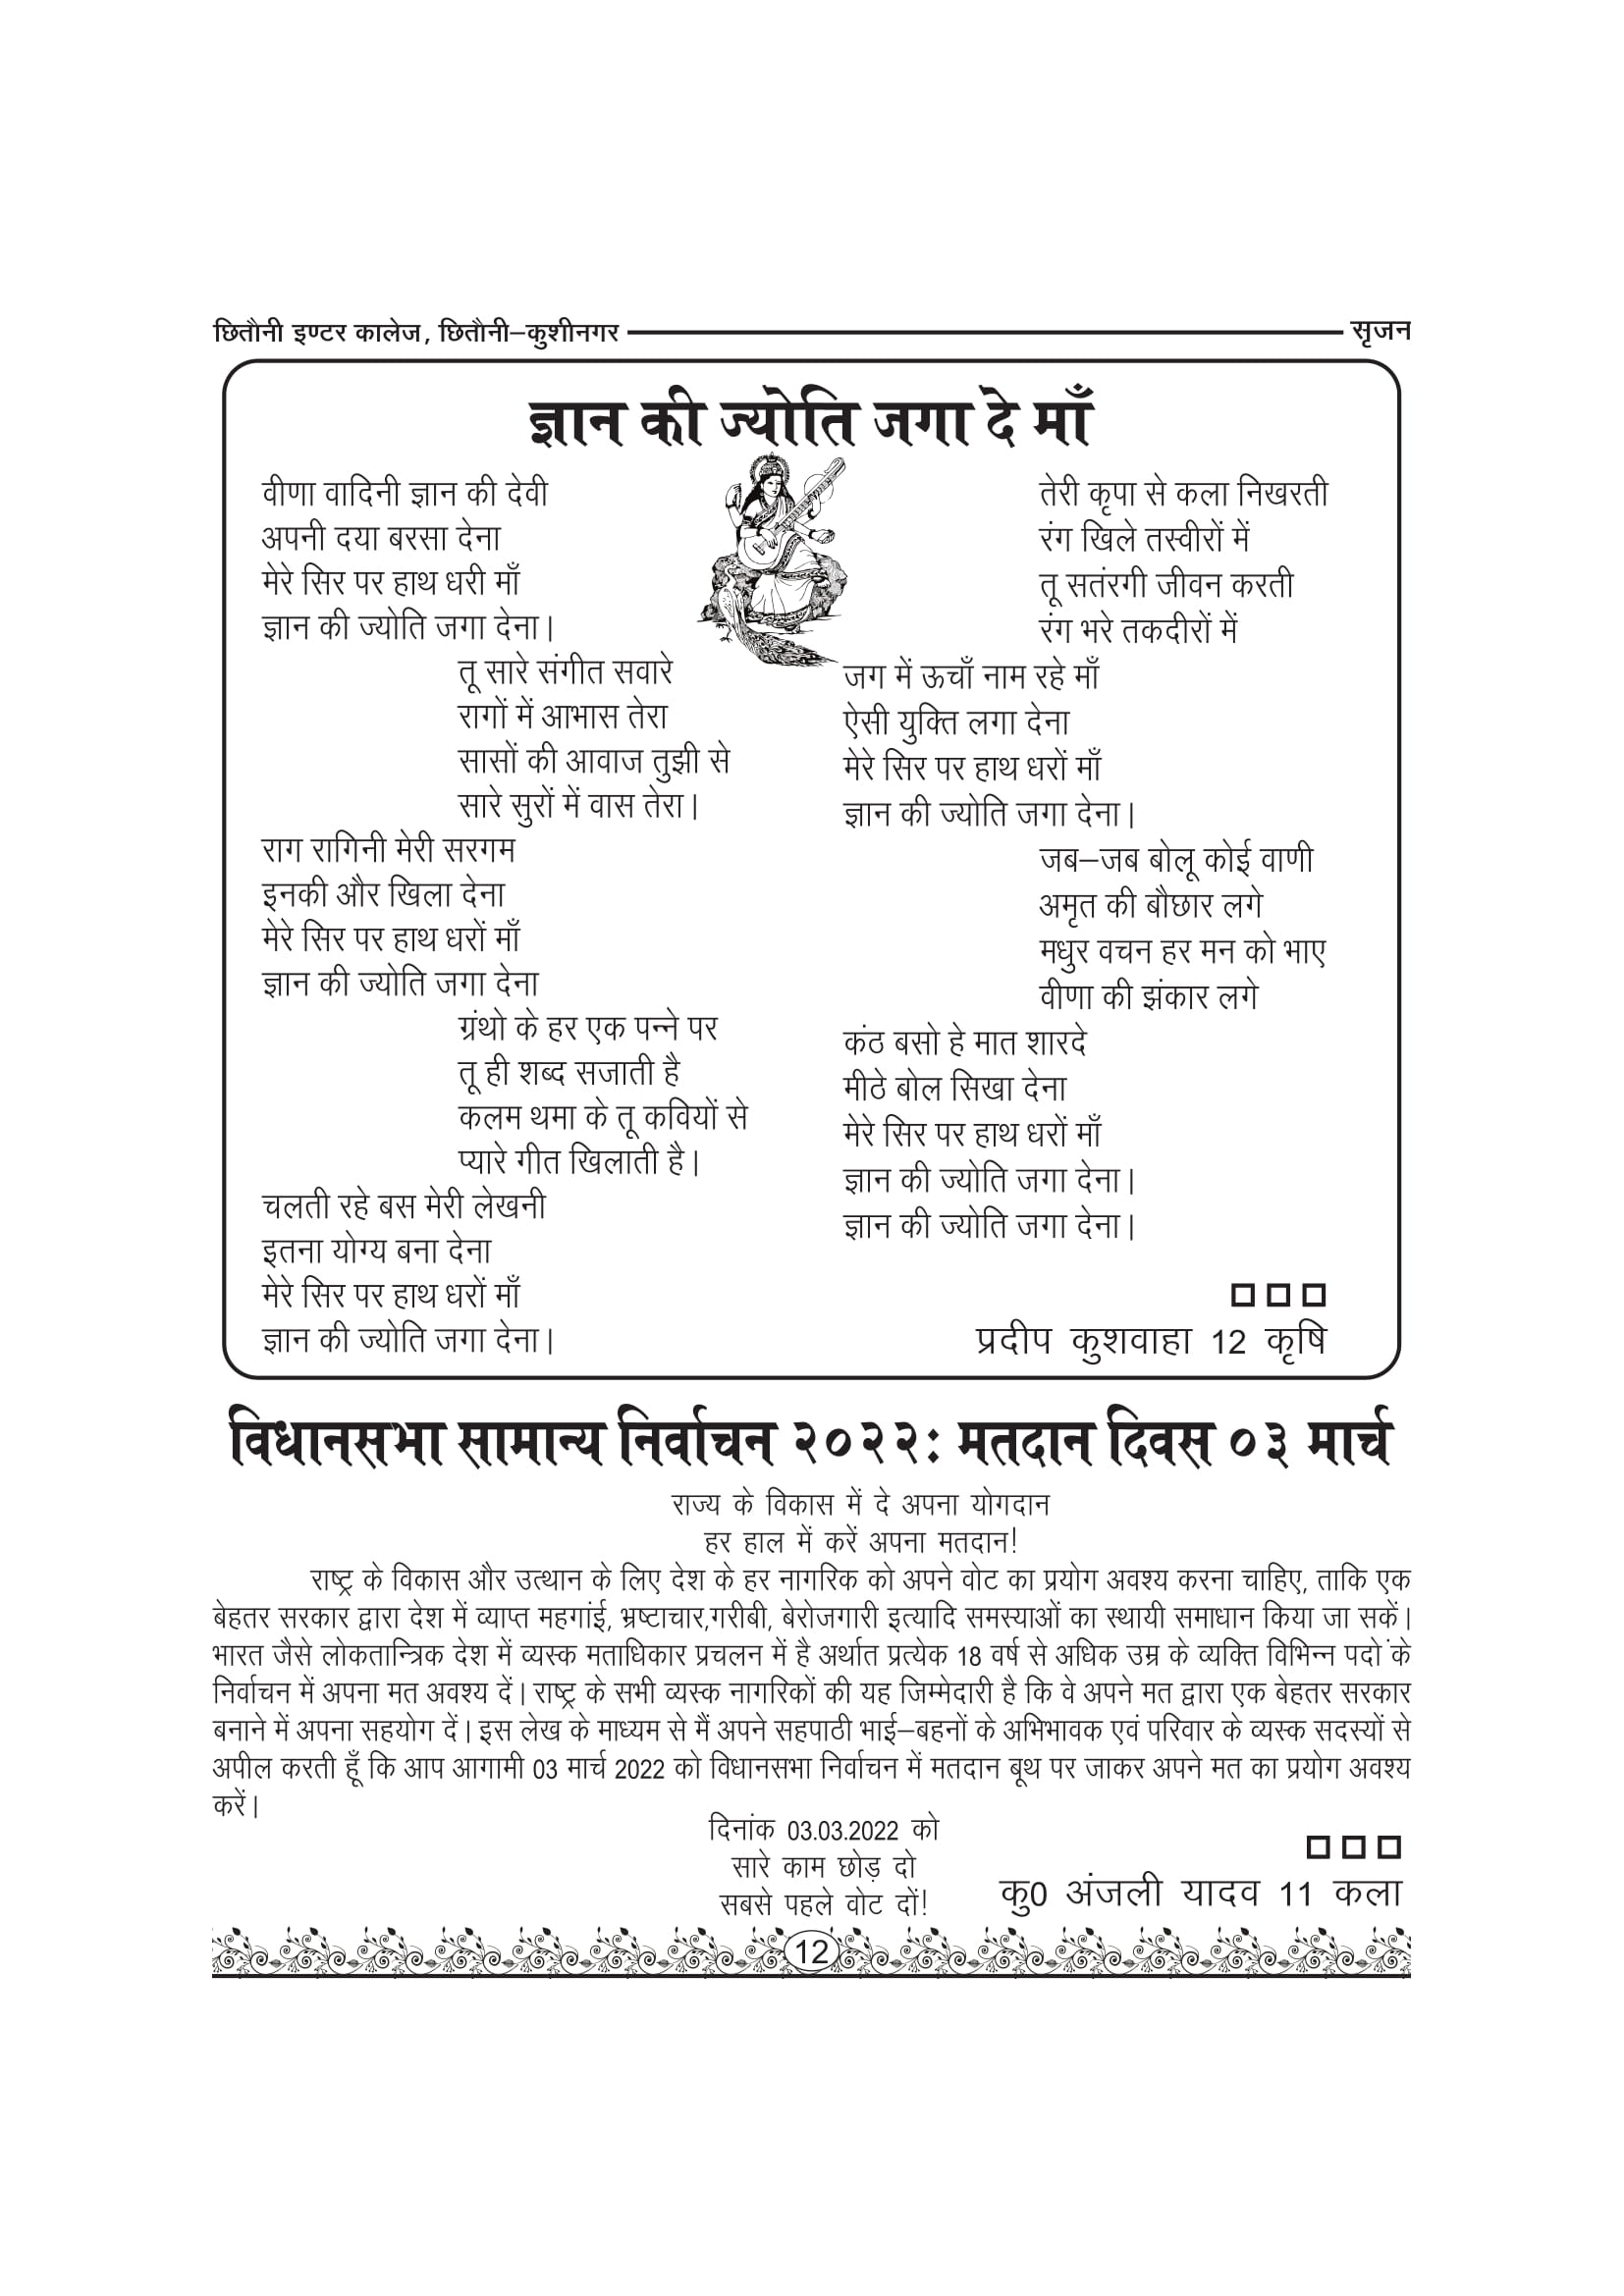 छितौनी इण्टर कालेज, छितौनी–कुशीनगर सृजन
ज्ञान की ज्योति जगा दे माँ
वीणा वादिनी ज्ञान की देवी
अपनी दया बरसा देना
मेरे सिर पर हाथ धरी माँ
ज्ञान की ज्योति जगा देना।
तू सारे संगीत सवारे
रागों में आभास तेरा
सासों की आवाज तुझी से
सारे सुरों में वास तेरा।
राग रागिनी मेरी सरगम
इनकी और खिला देना
मेरे सिर पर हाथ धरों माँ
ज्ञान की ज्योति जगा देना
ग्रंथो के हर एक पन्ने पर
तू ही शब्द सजाती है
कलम थमा के तू कवियों से
प्यारे गीत खिलाती है।
चलती रहे बस मेरी लेखनी
इतना योग्य बना देना
मेरे सिर पर हाथ धरों माँ
ज्ञान की ज्योति जगा देना।
तेरी कृपा से कला निखरती
रंग खिले तस्वीरों में
तू सतंरगी जीवन करती
रंग भरे तकदीरों में
जग में ऊचाँ नाम रहे माँ
ऐसी युक्ति लगा देना
मेरे सिर पर हाथ धरों माँ
ज्ञान की ज्योति जगा देना।
जब–जब बोलू कोई वाणी
अमृत की बौछार लगे
मधुर वचन हर मन को भाए
वीणा की झंकार लगे
कंठ बसो हे मात शारदे
मीठे बोल सिखा देना
मेरे सिर पर हाथ धरों माँ
ज्ञान की ज्योति जगा देना।
ज्ञान की ज्योति जगा देना।
प्रदीप कुशवाहा 12 कृषि
विधानसभा सामान्य निर्वाचन २०२२: मतदान दिवस ०३ मार्च
राज्य के विकास में दे अपना योगदान
हर हाल में करें अपना मतदान!
राष्ट्र के विकास और उत्थान के लिए देश के हर नागरिक को अपने वोट का प्रयोग अवश्य करना चाहिए, ताकि एक
बेहतर सरकार द्वारा देश में व्याप्त महगांई, भ्रष्टाचार,गरीबी, बेरोजगारी इत्यादि समस्याओं का स्थायी समाधान किया जा सकें।
भारत जैसे लोकतान्त्रिक देश में व्यस्क मताधिकार प्रचलन में है अर्थात प्रत्येक 18 वर्ष से अधिक उम्र के व्यक्ति विभिन्न पदो के
निर्वाचन में अपना मत अवश्य दें। राष्ट्र के सभी व्यस्क नागरिकों की यह जिम्मेदारी है कि वे अपने मत द्वारा एक बेहतर सरकार
बनाने में अपना सहयोग दें। इस लेख के माध्यम से मैं अपने सहपाठी भाई–बहनों के अभिभावक एवं परिवार के व्यस्क सदस्यों से
अपील करती हूँ कि आप आगामी 03 मार्च 2022 को विधानसभा निर्वाचन में मतदान बूथ पर जाकर अपने मत का प्रयोग अवश्य
करें।
दिनांक 03.03.2022 को
सारे काम छोड़ दो
सबसे पहले वोट दों!
कु0 अंजली यादव 11 कला
12